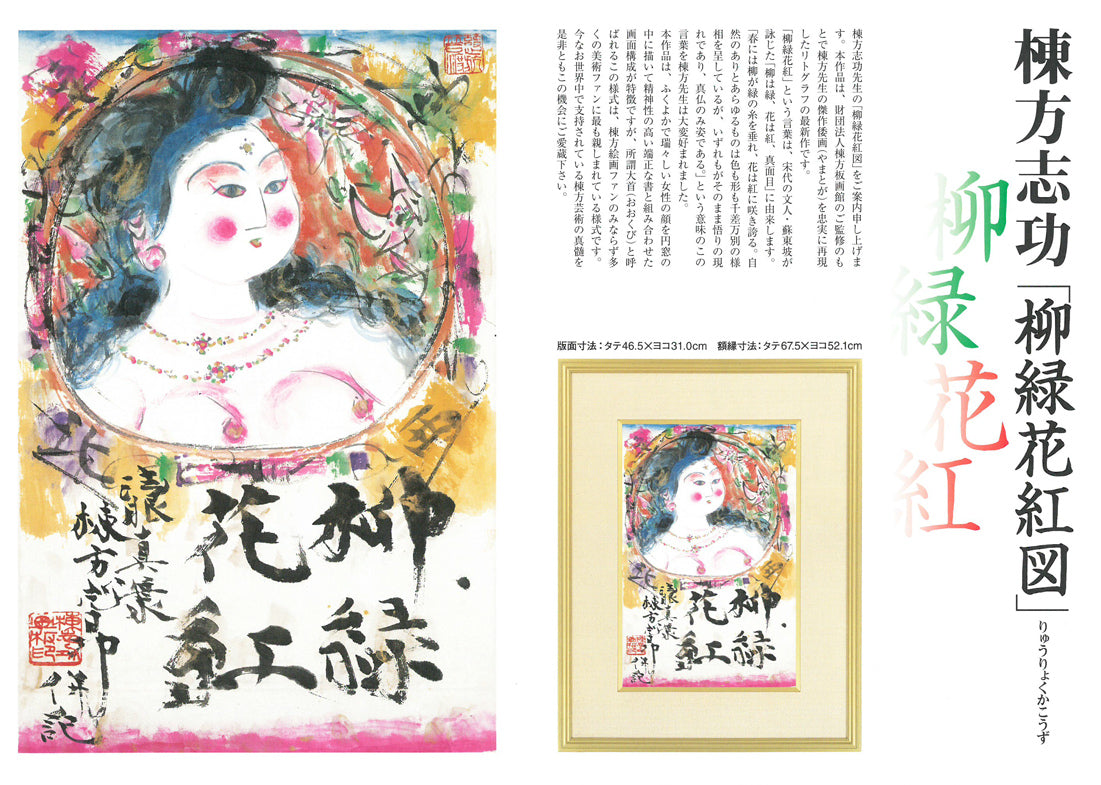 棟方志功「柳緑花紅図」
りゅうりょくかこうず
柳緑花紅
棟方志功先生の「柳緑花紅図」をご案内申し上げま
す。本作品は、財団法人棟方板画館のご監修のも
とで棟方先生の傑作倭画（やまとが）を忠実に再現
したリトグラフの最新作です。
「柳緑花紅」という言葉は、宋代の文人・蘇東坡が
詠じた「柳は緑、花は紅、真面目」に由来します。
「春には柳が緑の糸を垂れ、花は紅に咲き誇る。自
然のありとあらゆるものは色も形も千差万別の様
相を呈しているが、いずれもがそのまま悟りの現
れであり、真仏のみ姿である。」という意味のこの
言葉を棟方先生は大変好まれました。
本作品は、ふくよかで瑞々しい女性の顔を円窓の
中に描いて精神性の高い端正な書と組み合わせた
画面構成が特徴ですが、所謂大首（おおくび）と呼
ばれるこの様式は、棟方絵画ファンのみならず多
くの美術ファンに最も親しまれている様式です。
今なお世界中で支持されている棟方芸術の真髄を
是非ともこの機会にご愛蔵下さい。
版面寸法：タテ46.5×ヨコ31.0cm　額縁寸法：タテ67.5×ヨコ52.1cm
柳緑
花紅
棟方志功
併記
柳緑
花紅
棟方志功
併記